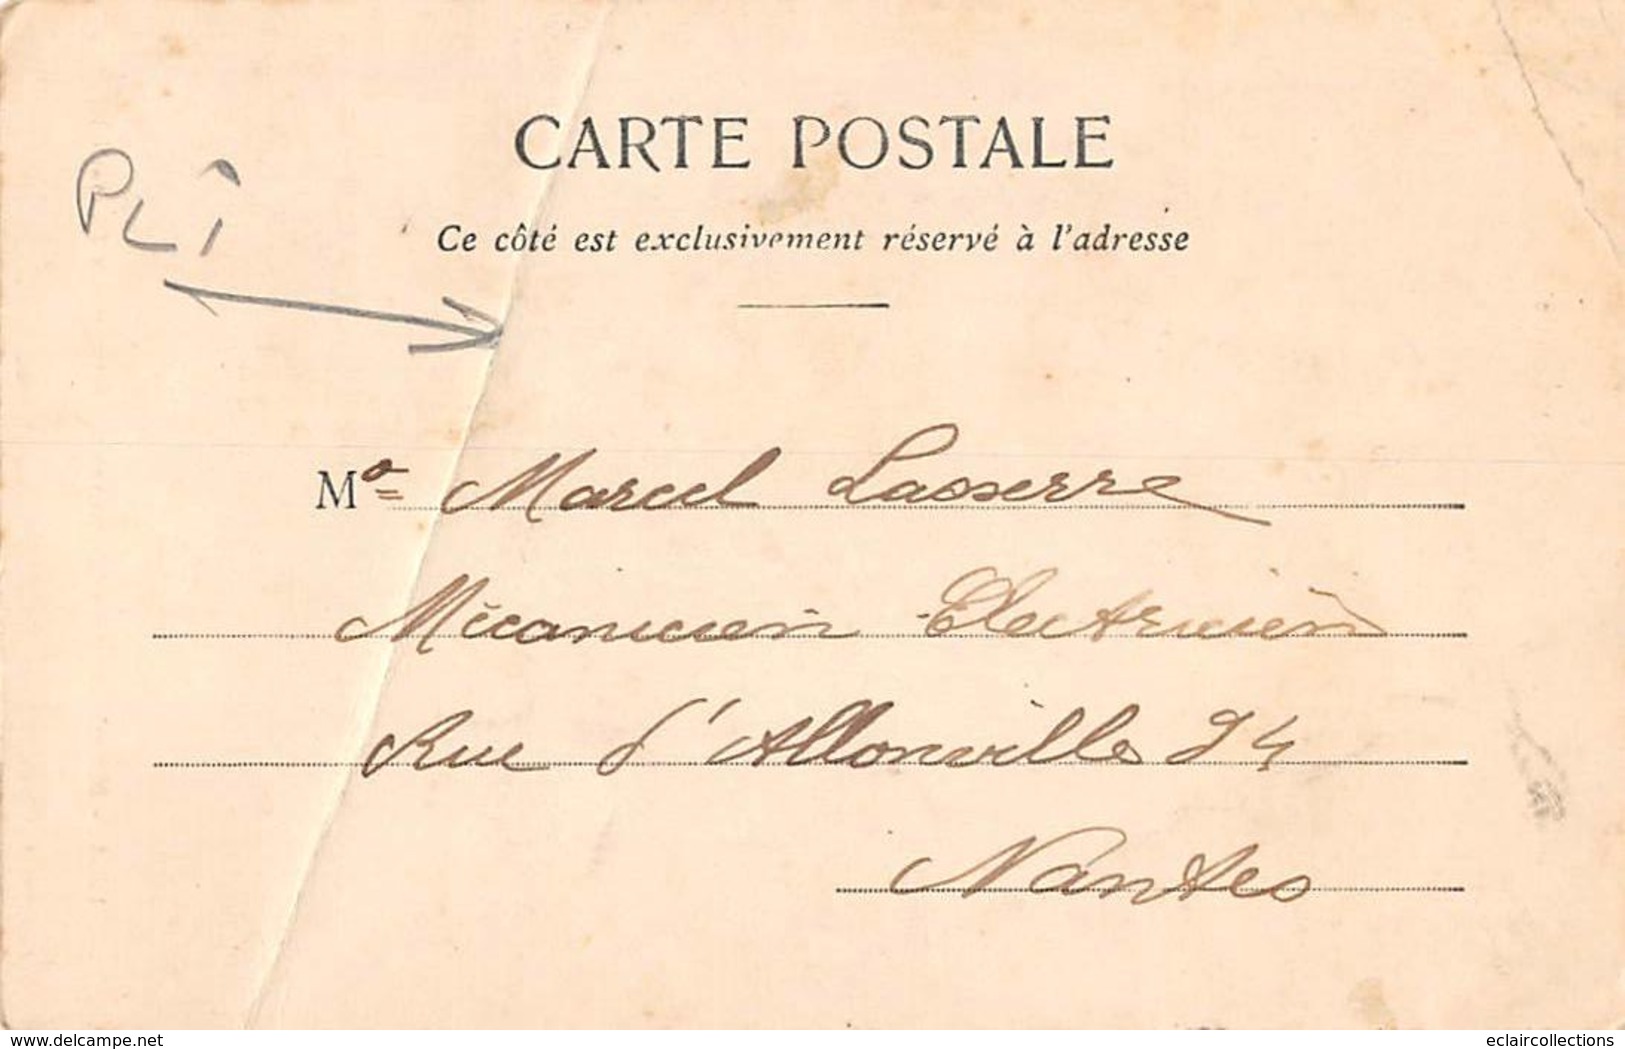 CARTE POSTALE
PLÎ
Ce côté est exclusivement réservé à l'adresse
Mr Marcel Lasserre
Mécanicien Electricien
Rue d'Allonville 24
Nantes
delcampe.net
eclaircollections